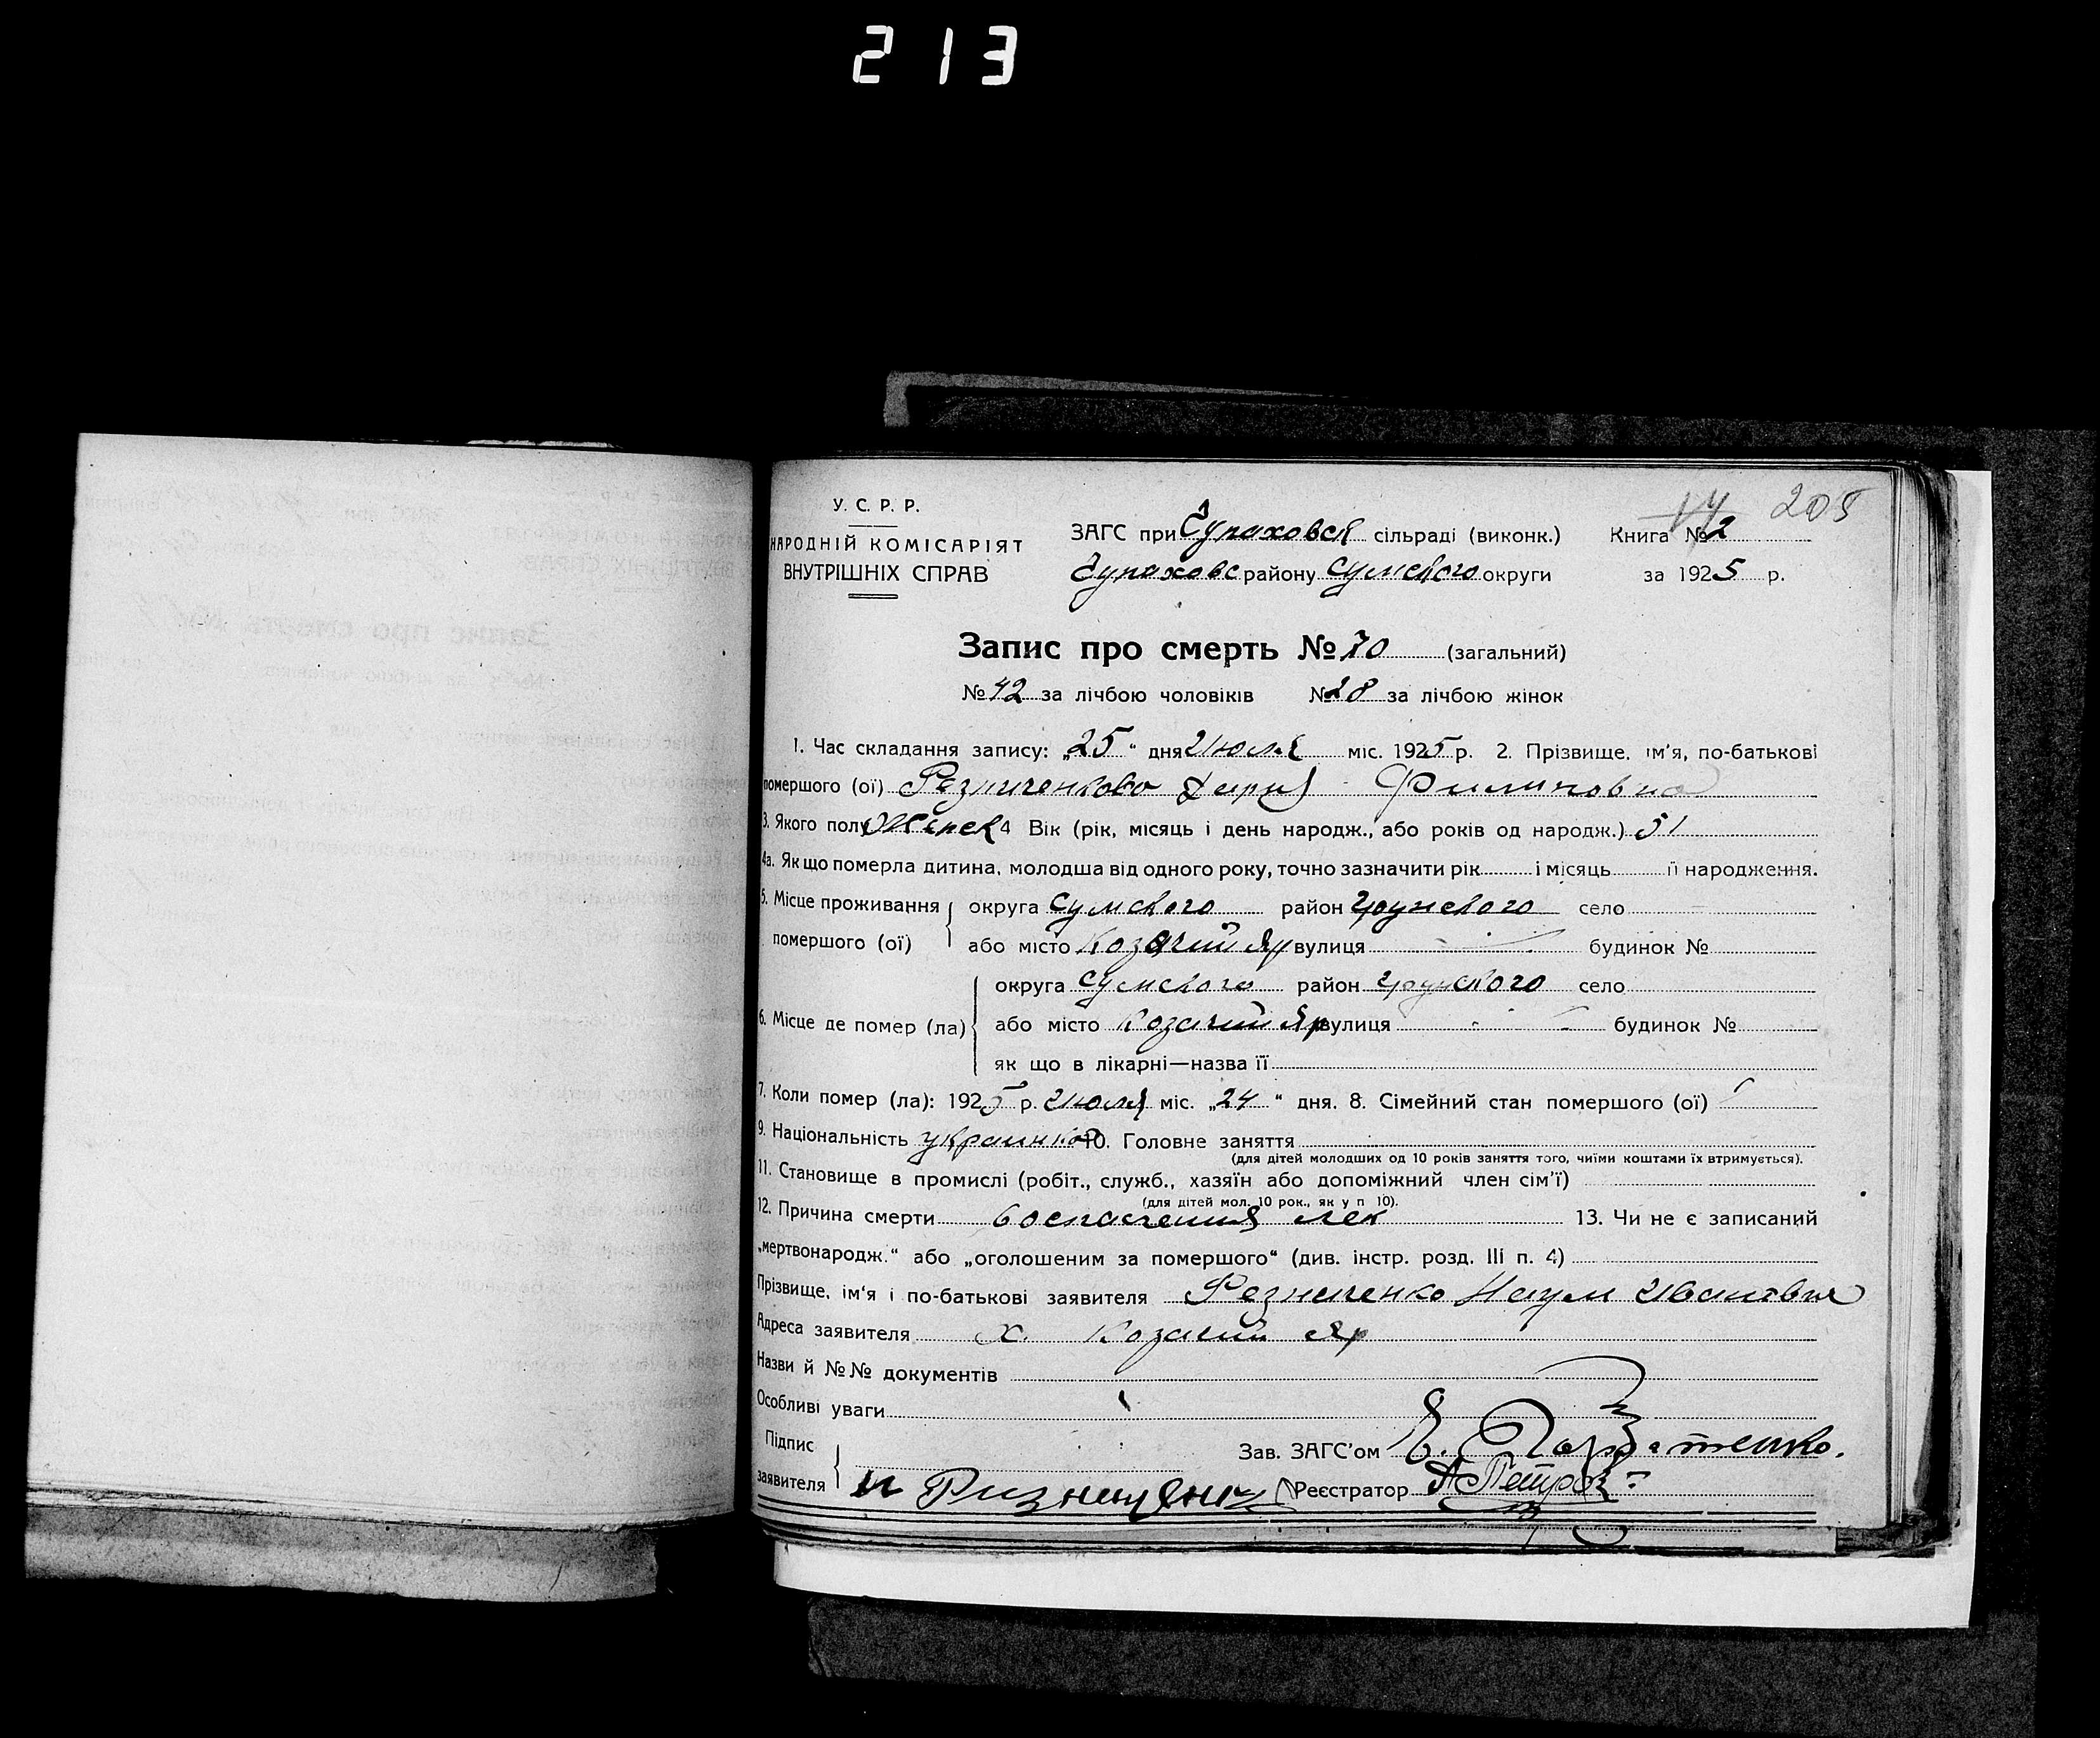 213
205
У. С. Р. Р.
НАРОДНІЙ КОМІСАРІЯТ
ВНУТРІШНІХ СПРАВ
ЗАГС при Чупаховск сільраді (виконк.) Книга № 2
Чупаховс району Сумского округи за 1925 р.
Запис про смерть № 70 (загальний)
№ 42 за лічбою чоловіків № 28 за лічбою жінок
1. Час складання запису: „25“ дня Июля міс. 1925 р. 2. Прізвище, ім'я, по-батькові
помершого (ої) Резниченкова Дария Филиповна
3. Якого полу Женск 4 Вік (рік, місяць і день народж., або років од народж.) 51
4а. Як що померла дитина, молодша від одного року, точно зазначити рік і місяць її народження.
5. Місце проживання округа Сумского район Грунского село
помершого (ої) або місто Козачий Яр вулиця будинок №
округа Сумского район Грунского село
6. Місце де помер (ла) або місто Козачий Яр вулиця будинок №
як що в лікарні—назва її
7. Коли помер (ла): 1925 р. Июля міс. „24“ дня. 8. Сімейний стан помершого (ої)
9. Національність украинка 10. Головне заняття
(для дітей молодших од 10 років заняття того, чиїми коштами їх втримується).
11. Становище в промислі (робіт., служб., хазяїн або допоміжний член сім'ї)
(для дітей мол. 10 рок., як у п 10).
12. Причина смерти воспаления лек 13. Чи не є записаний
„мертвонародж.“ або „оголошеним за помершого“ (див. інстр. розд. III п. 4)
Прізвище, ім'я і по-батькові заявителя Резниченко Наум Иванович
Адреса заявителя х. Козачий Яр
Назви й №№ документів
Особливі уваги
Підпис
Зав. ЗАГС'ом
заявителя Реєстратор А Петров